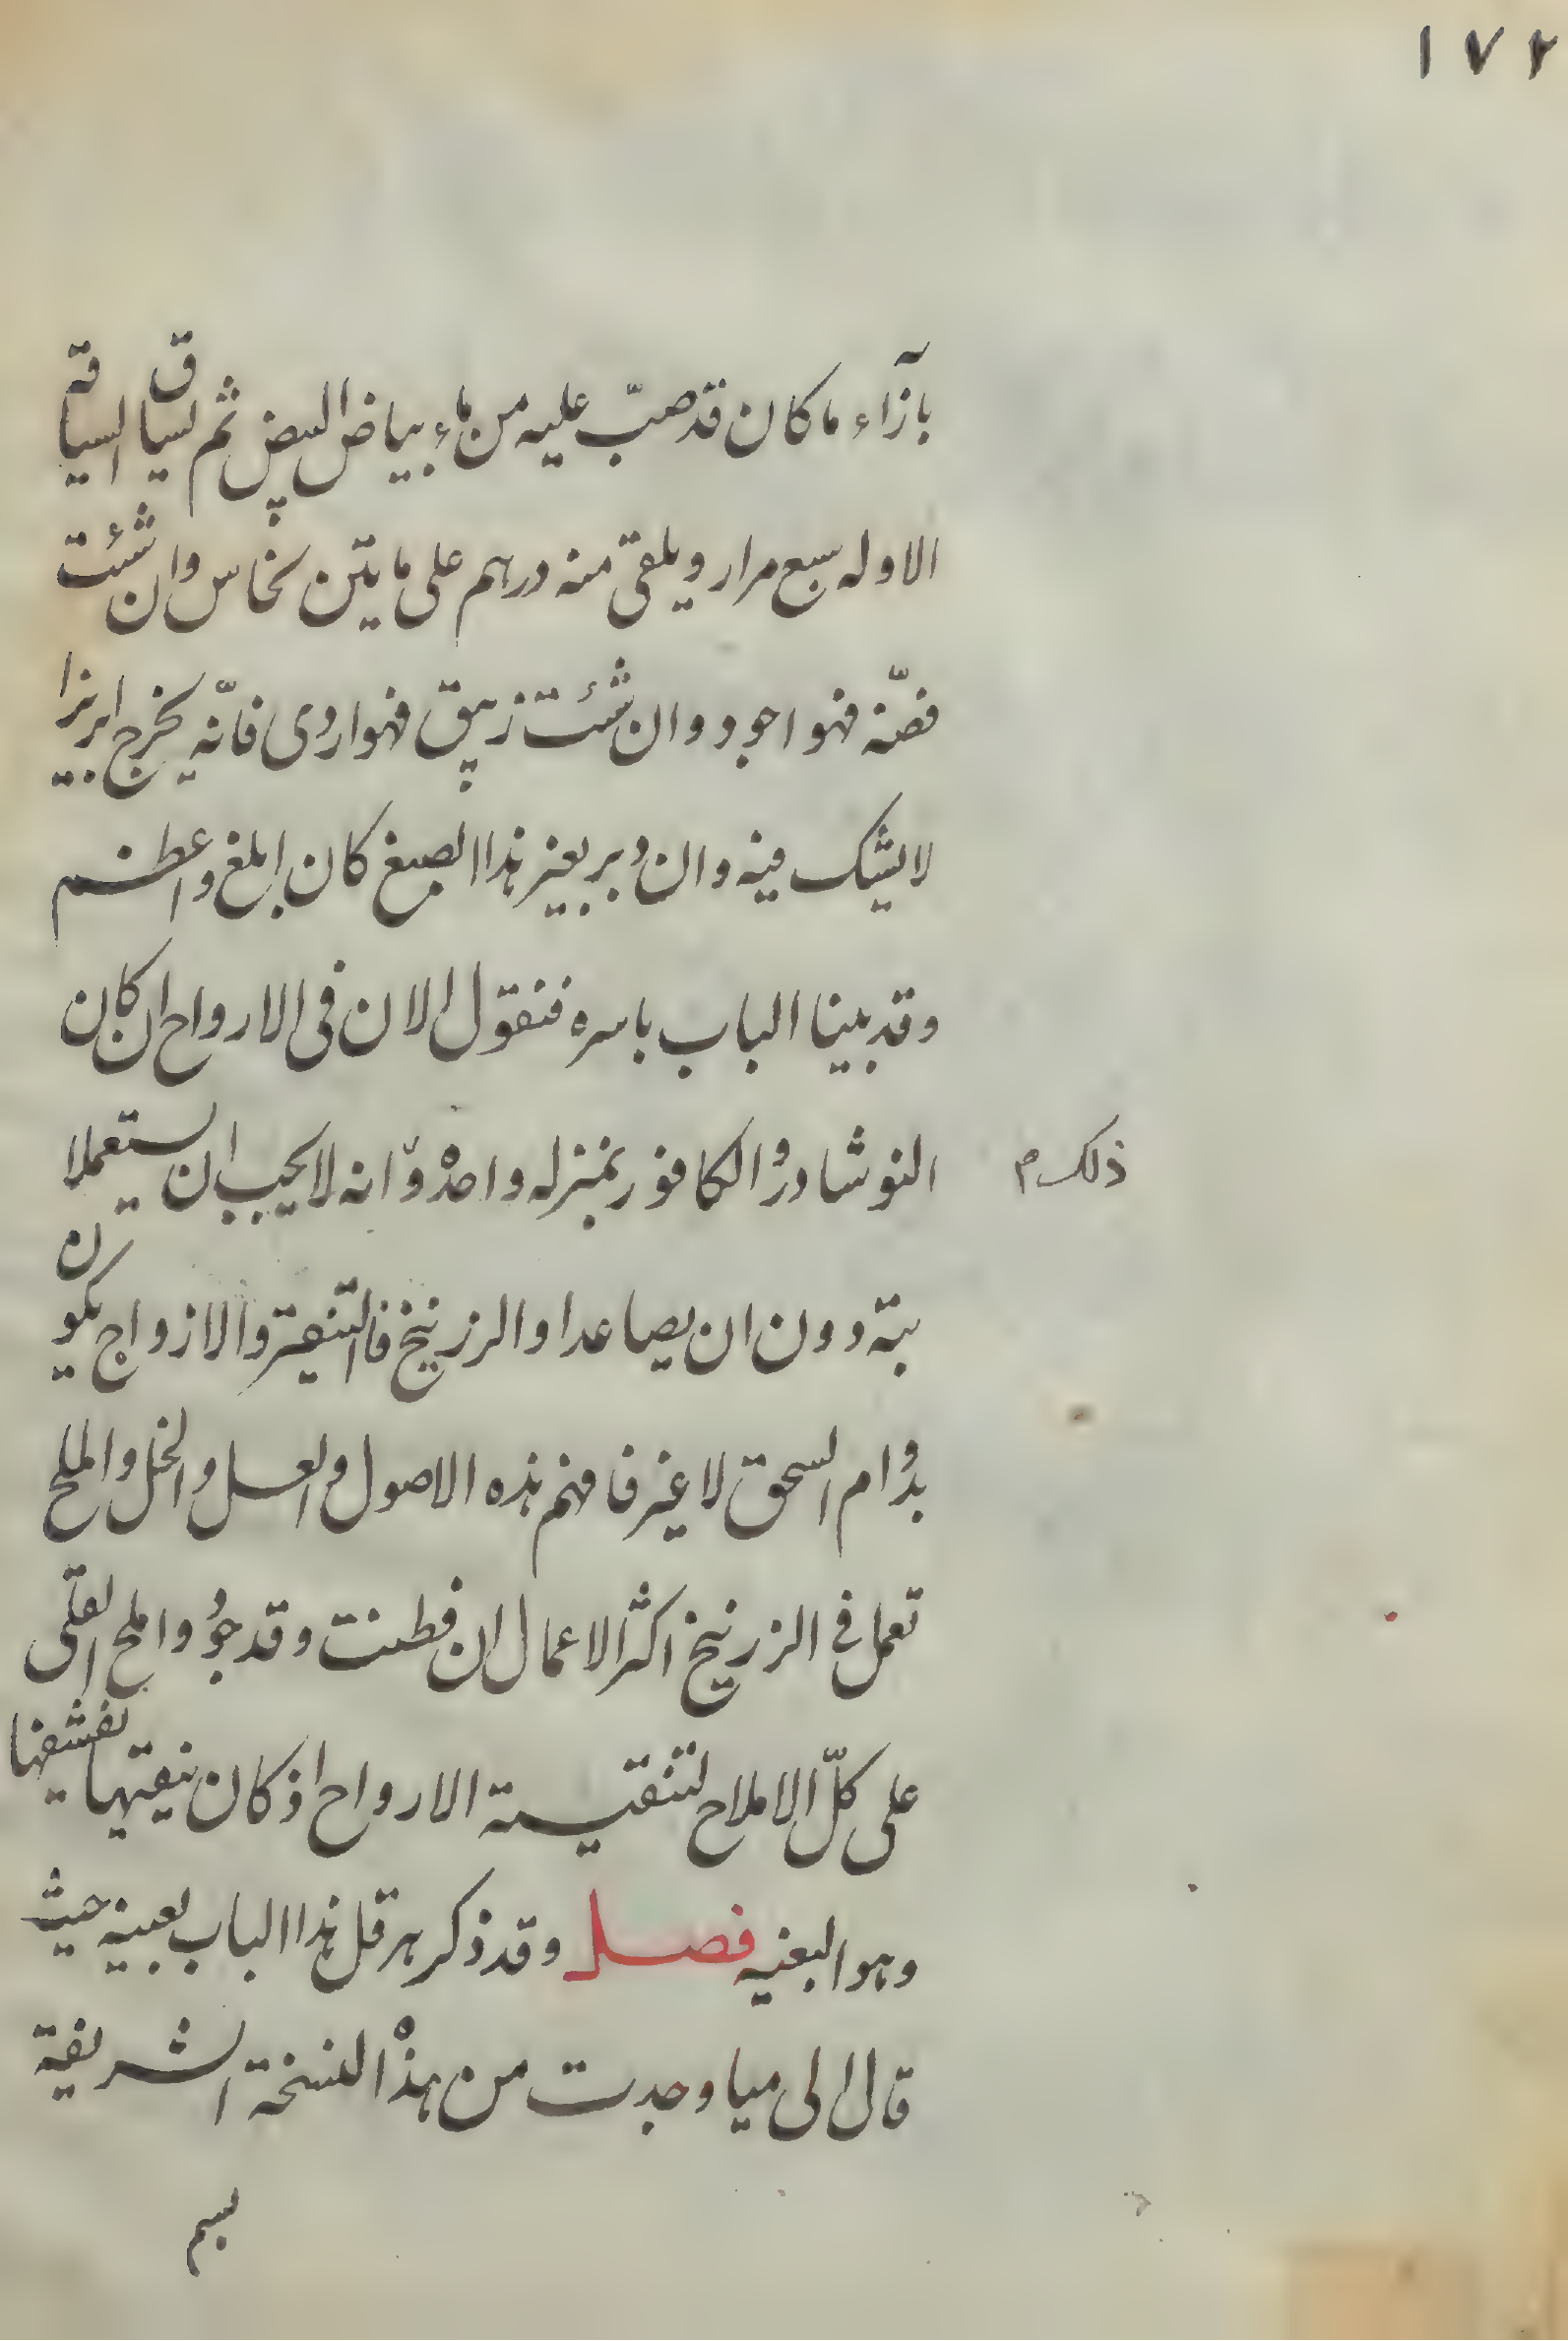 ١٧٢
بآزآء ما كان قد صبّ عليه من ماء بياض البيض ثم يساق السياقة
الاوله سبع مرار ويلقى منه درهم على مايتين نحاس وان شئت
فضّه فهو اجود وان شئت زيبق فهو اردى فانّه يخرج ابريزا
لا يشك فيه وان دبر بغير هذا الصبغ كان ابلغ واعظم
وقد بينا الباب باسره فنقول الان فى الارواح ان كان
النوشادر والكافور بمنزله واحده وانه لا يجب ان يستعملا
ذلك م
بتة دون ان يصاعدا والزرنيخ فالتنقية والازواج يكون
بدوام السحق لا غير فافهم هذه الاصول والعسل والخل والملح
تعمل في الزرنيخ اكثر الاعمال ان فطنت وقد جودوا ملح القلى
على كلّ الاملاح لتنقية الارواح اذ كان ينقيها
وهو البغيه فصل وقد ذكر هرقل هذا الباب بعينه حيث
قال الى ميا وجدت من هذه النسخة الشريفة
بسم